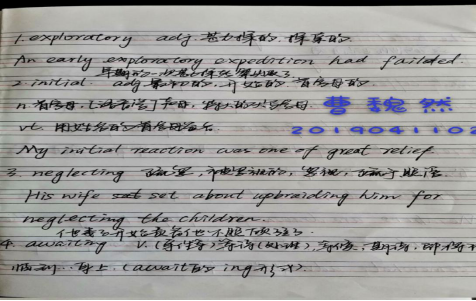 1. exploratory adj. 甚力探的. 探索的.
An early exploratory expedition had failded.
早期的一次 探险 失败了
2. initial adj 最初的. 开始的. 首字母的.
n. 首字母. 首字母. 曹魏然
vt. 用姓名的首字母签名 2019041102
My initial reaction was one of great relief
3. neglecting 疏忽, 忽视, 疏于照管
His wife set about upbraiding him for
neglecting the children.
他妻子开始 他不照顾孩子
4. awaiting v. (等待) 等待(处理), 等候, 期待, 即将
临到…身上. (await的 ing形式)